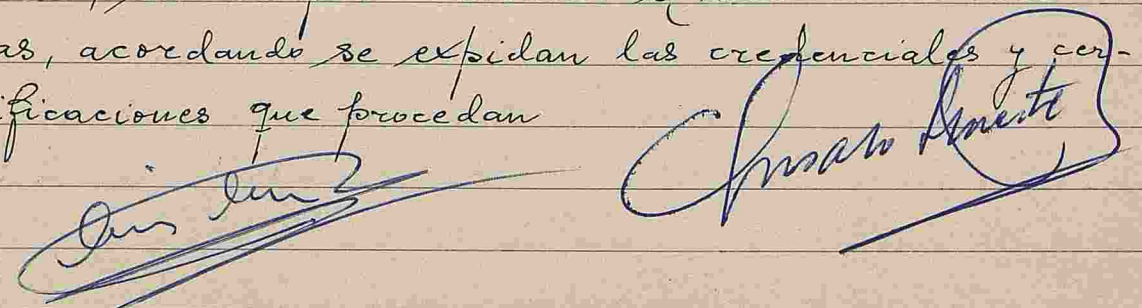 as, acordando se expidan las credenciales y cer-
ificaciones que procedan
Luis